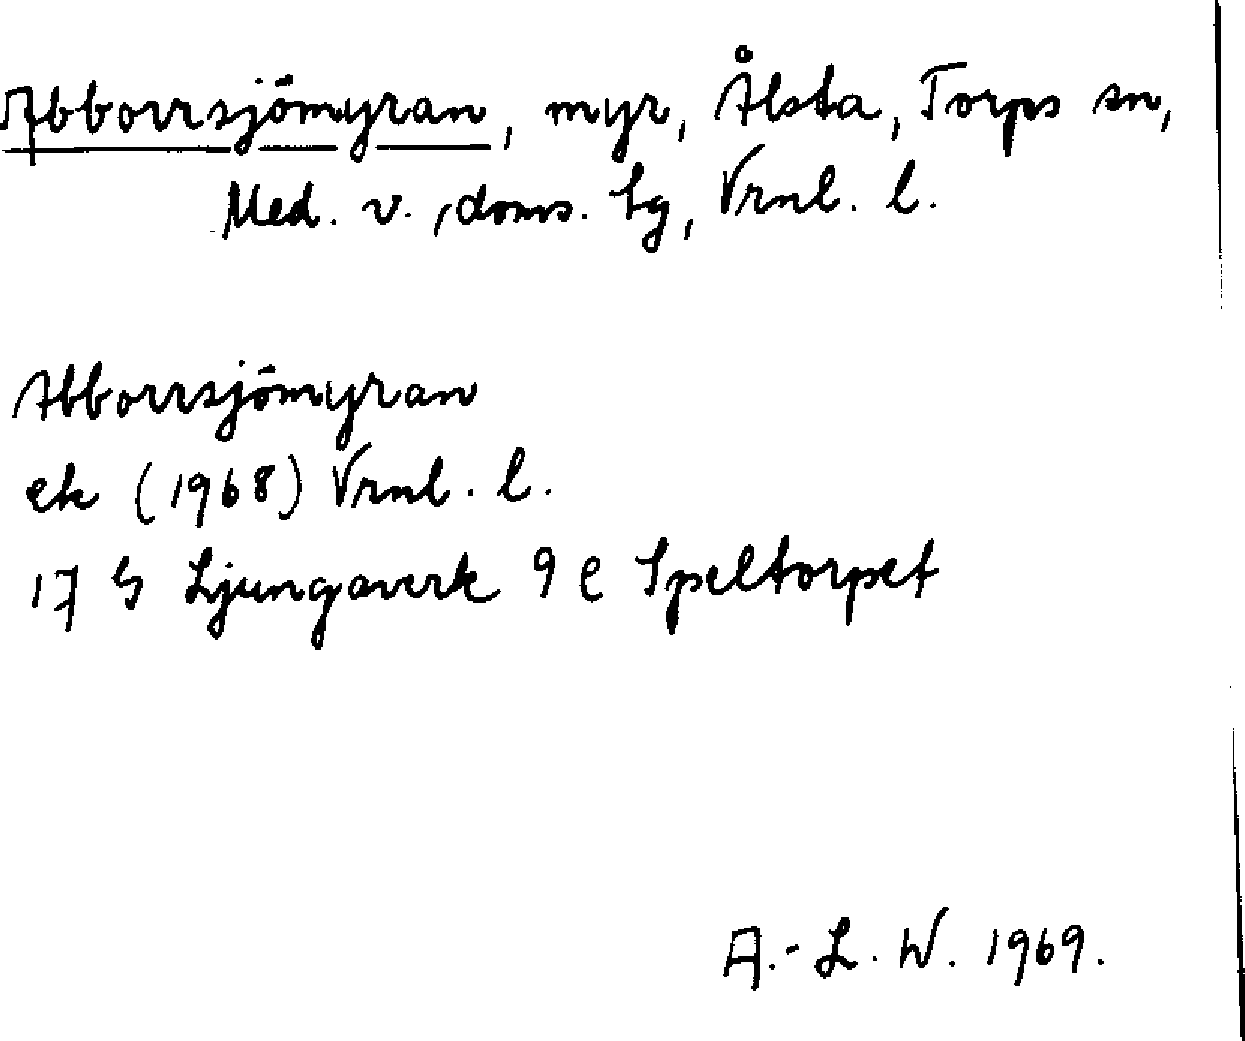 Abborrsjömyran, myr, Ålsta, Torps sn,
Med. v., doms. hg, Vrnl. l.
Abborrsjömyran
ek (1968) Vrnl. l.
17 G Ljungaverk 9 e Speltorpet
A.-L. W. 1969.